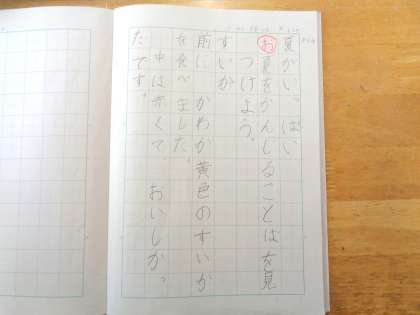 夏がいっぱい
お夏をかんじることばを見
つけよう。
すいか
前に、かわが黄色のすいか
を食べました。
中は赤くて、おいしかっ
たです。